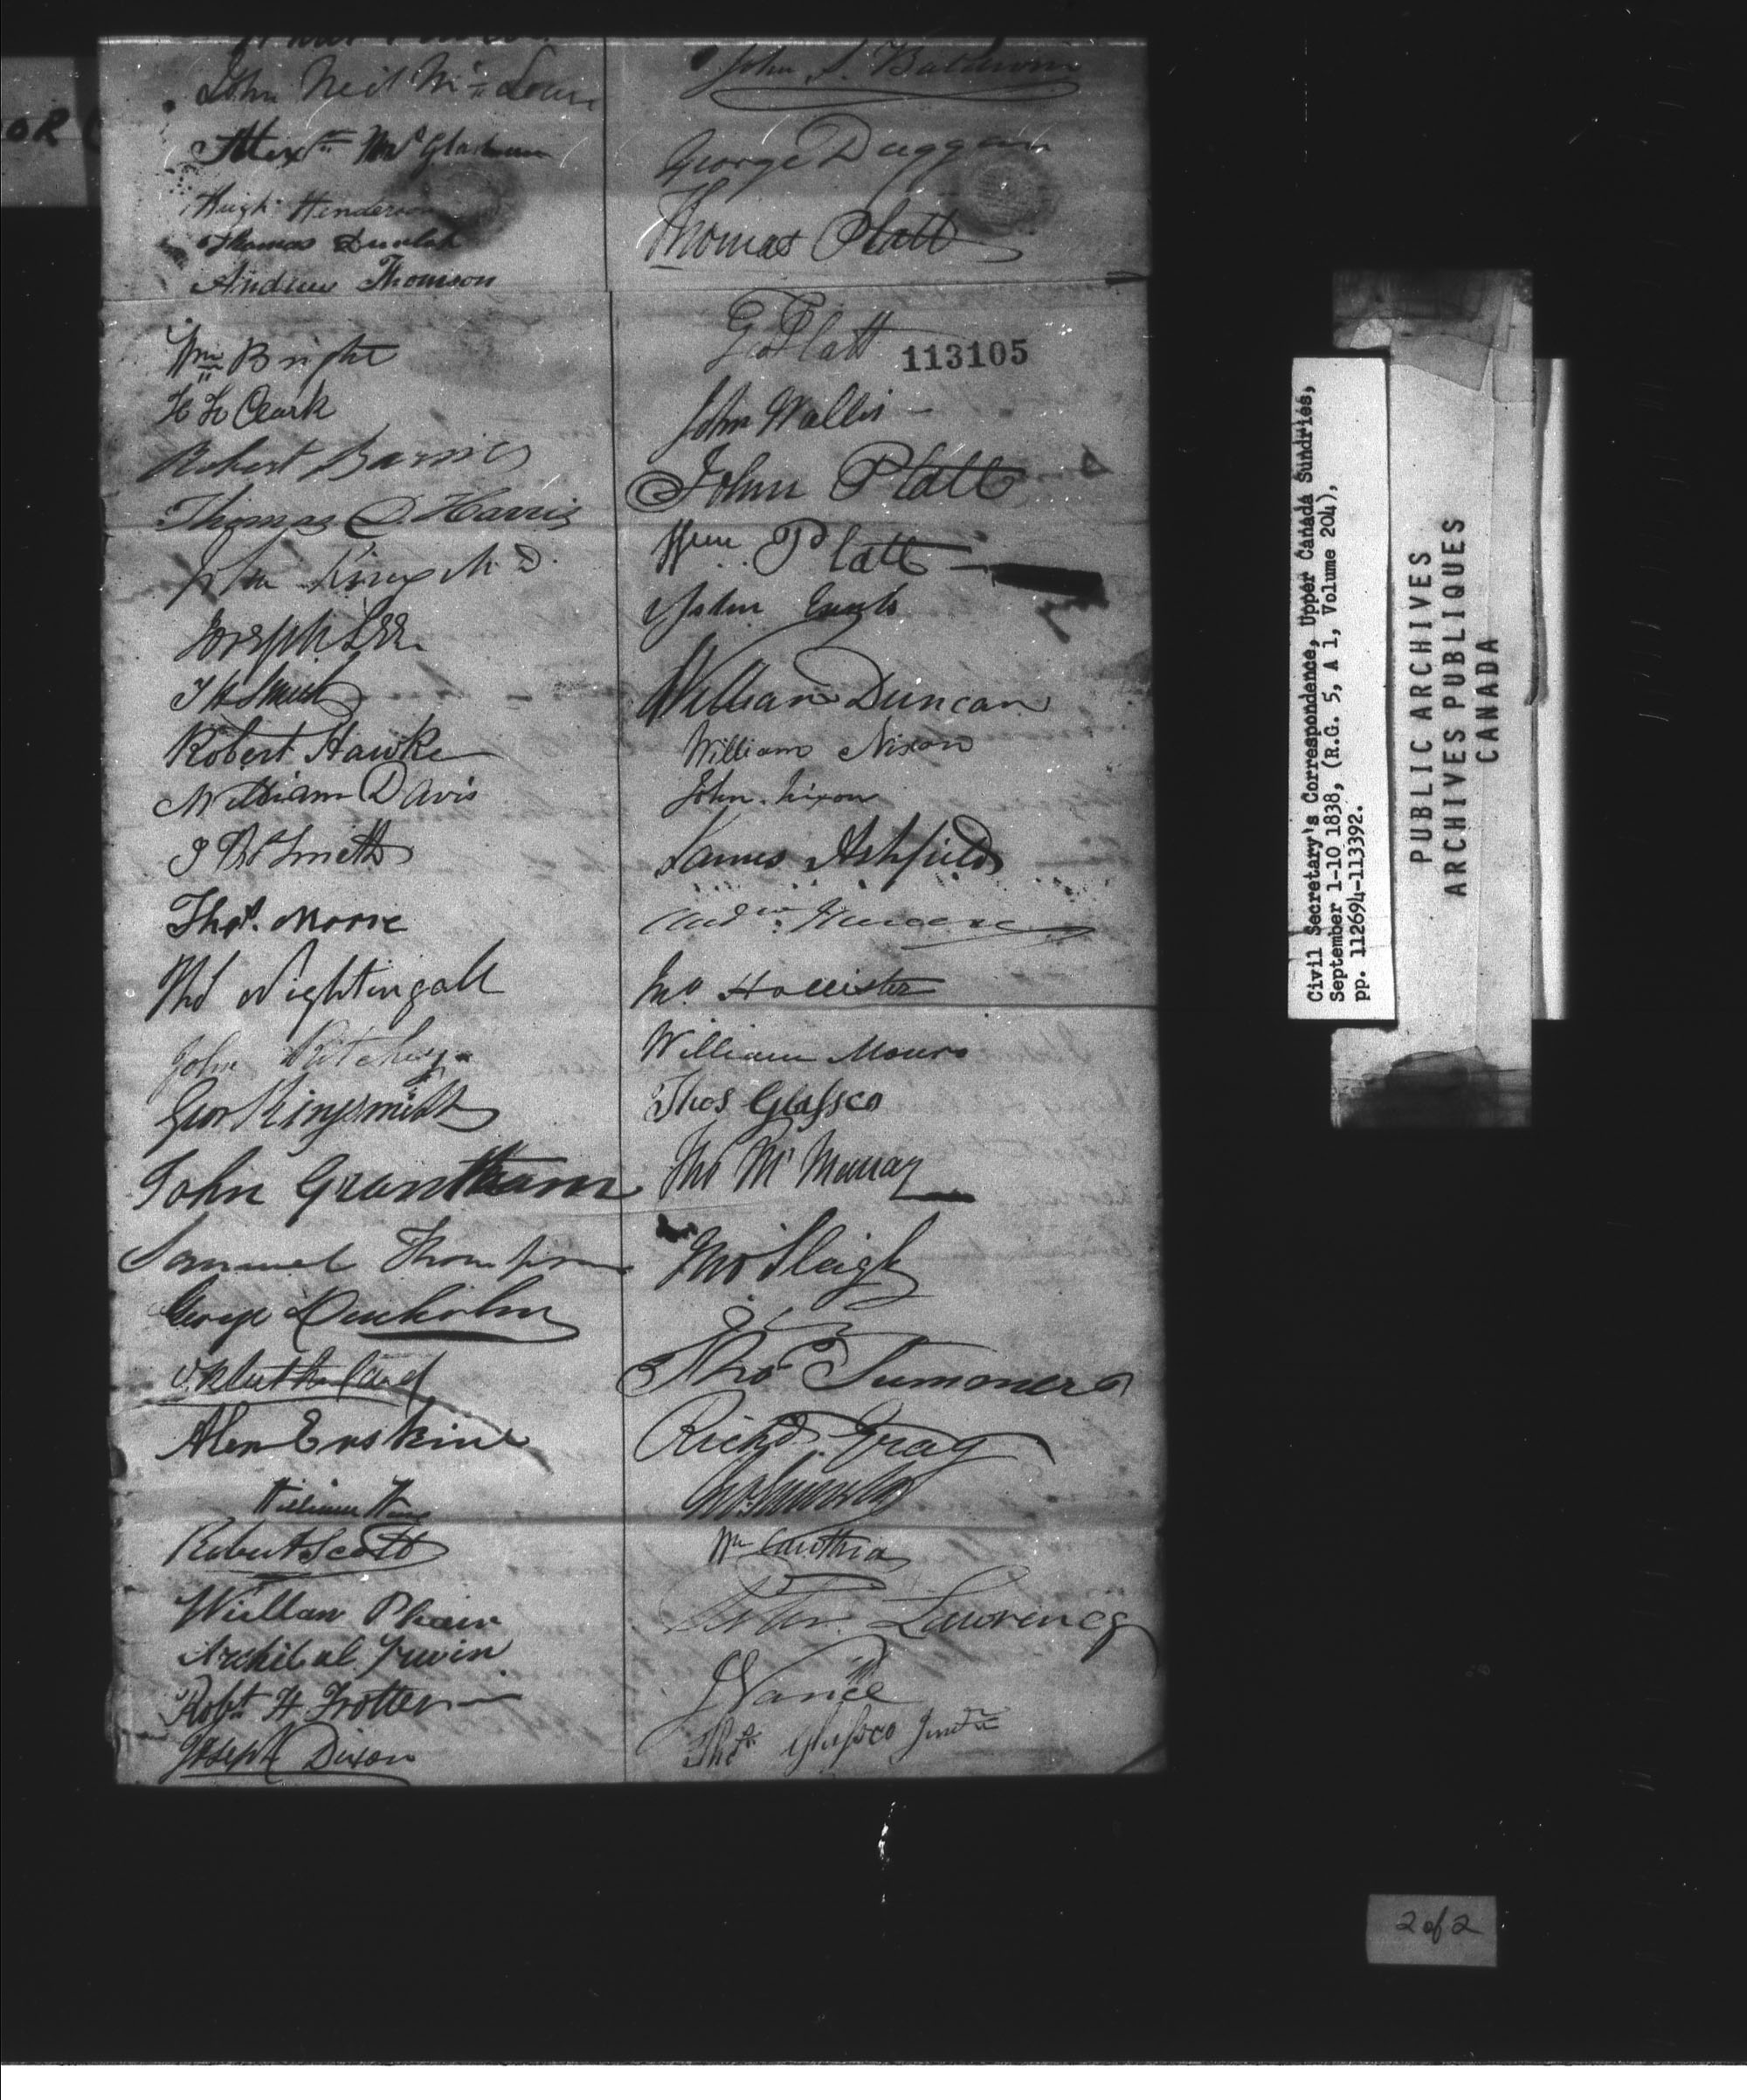 John Neil Mc
Alexr
Hugh Henderson
Thomas Dunlap
Andrew Thomson
Wm Bright
Clark
Robert Barrie
Thomas D. Harris
John King M D.
Joseph Lee
Robert Hawke
William Davis
Smith
Thos. Moore
Thos Nightingale
John Ritchey
Geo Kingsmill
John Grantham
Samuel Thompson
George Denholm
Sutherland
Alex Erskine
William
Robert Scott
William Phair
Archibal Irwin
Robt H Trotter
Joseph Dixon
John S. Baldwin
George Duggan
Thomas Platt
G Platt
113105
John Wallis
John Platt
Wm. Platt
John
William Duncan
William Nixon
John Nixon
James Ashfield
Andw.
Jno Hollister
William Moore
Thos Glassco
Thos Mc Murray
Jno Sleigh
Thos Summers
Richd. Gray
Wm Cawthra
Peter Lawrence
J Vance
Thos Glassco Junr
OR
Civil Secretary's Correspondence, Upper Canada Sundries,
September 1-10 1838, (R.G. 5, A 1, Volume 204),
pp. 112694-113392.
PUBLIC ARCHIVES
ARCHIVES PUBLIQUES
CANADA
2 of 2